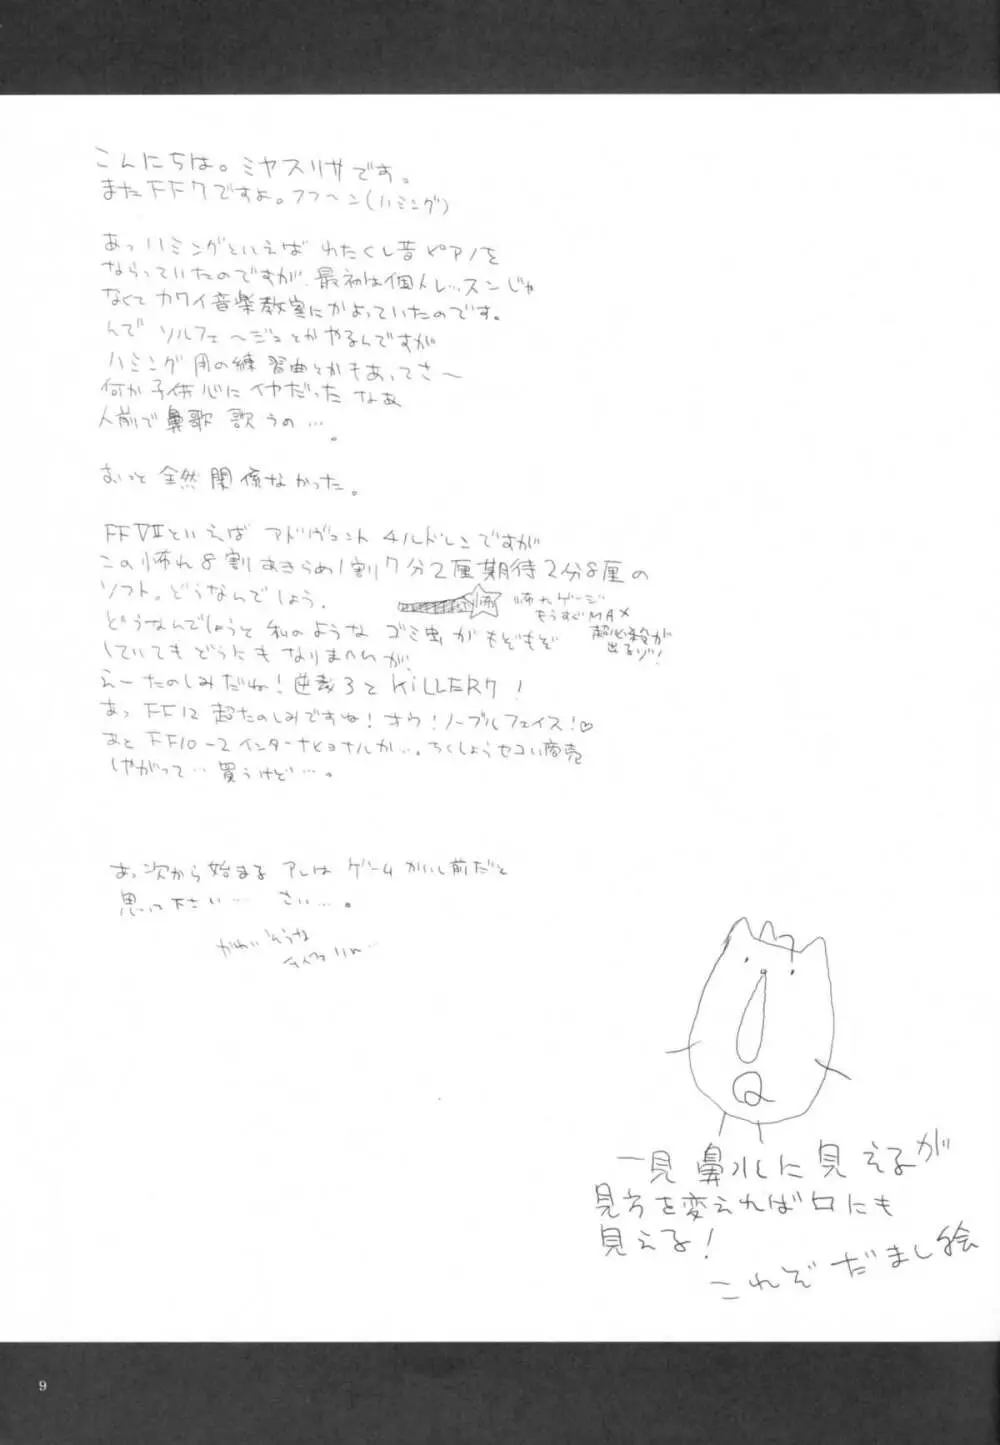 こんにちは。ミヤスリサです。
またFF7ですよ。フフ〜ン(ハミング)
あっハミングといえば わたくし昔ピアノを
ならっていたのですが、最初は個人レッスンじゃ
なくて カワイ音楽教室にかよっていたのです。
んで ソルフェ〜ジュとかやるんですが
ハミング用の練習曲とかもあってさ〜
何か子供心に イヤだった なあ
人前で鼻歌 歌うの…。
おっと 全然関係なかった。
FFVIIといえば アドヴェント チルドレンですが
この怖れ8割あきらめ1割7分2厘期待2分8厘の
ソフト。どうなんでしょう。
怖
怖れゲージ
もうすぐMAX
超必殺が
出るゾ!
どうなんでしょうと 私のような ゴミ虫が もぞもぞ
していても どうにも なりませんが、
えーたのしみだね!逆裁3とKiLLER7!
あっFF12 超たのしみですね!オウ!ノーブルフェイス!♡
あと FF10-2インターナショナルか…。ちくしょうセコい商売
しやがって…買うけど…。
あっ次から始まる アレは ゲームかいし前だと
思って下さい… さい…。
かわいそうな
一見鼻水に見えるが
見方を変えれば口にも
見える!
これぞ だまし絵
9